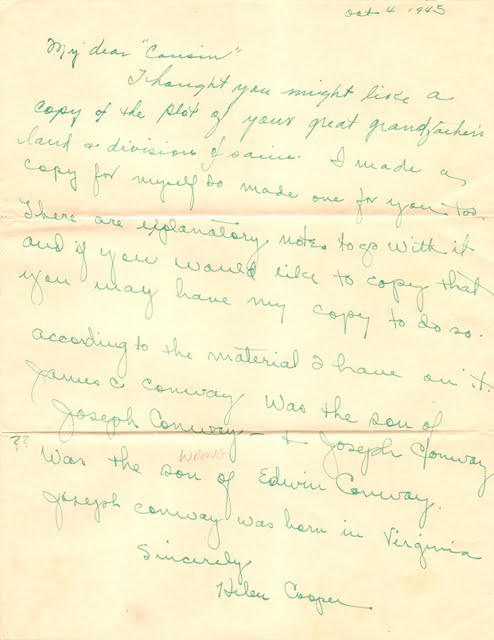 Oct 4 1945
My dear "Cousin"
I thought you might like a
copy of the plot of your great grandfather's
land & division of same. I made a
copy for myself so made one for you too.
There are explanatory notes to go with it
and if you would like to copy that
you may have my copy to do so.
according to the material I have on it.
James C. Conway was the son of
Joseph Conway - & Joseph Conway
?? was the son of Edwin Conway.
WRONG
Joseph Conway was born in Virginia
Sincerely
Helen Cooper